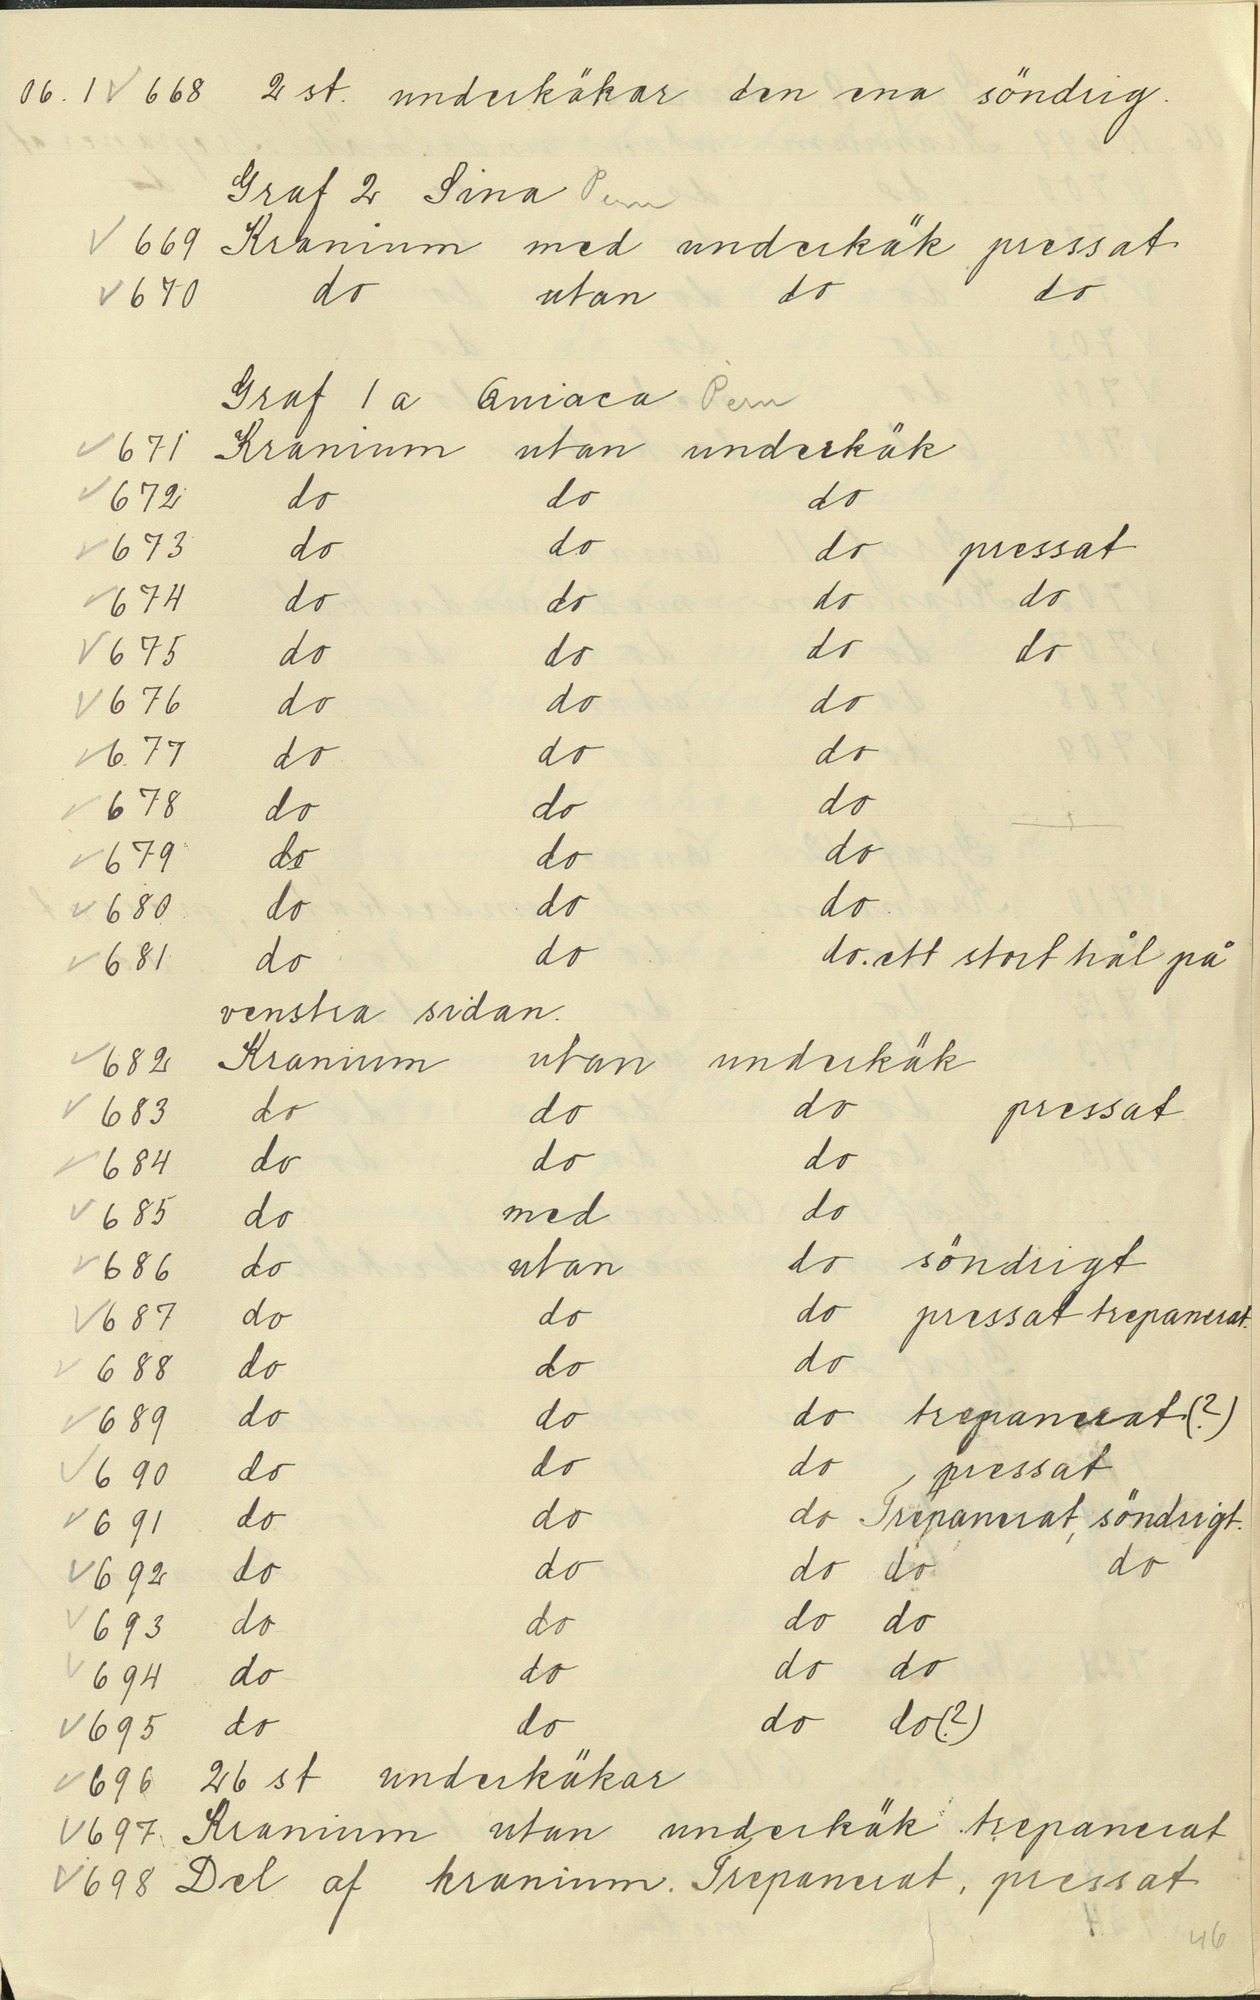 06.1 ✓ 668 2 st. underkäkar den ena söndrig.
Graf 2 Sina Peru
✓ 669 Kranium med underkäk pressat
✓ 670 do utan do do
Graf 1 a Aniaca Peru
✓ 671 Kranium utan underkäk
✓ 672 do do do
✓ 673 do do do pressat
✓ 674 do do do do
✓ 675 do do do do
✓ 676 do do do
✓ 677 do do do
✓ 678 do do do
✓ 679 do do do
✓ 680 do do do
✓ 681 do do do. ett stort hål på
venstra sidan.
✓ 682 Kranium utan underkäk
✓ 683 do do do pressat
✓ 684 do do do
✓ 685 do med do
✓ 686 do utan do söndrigt
✓ 687 do do do pressat trepanerat.
✓ 688 do do do
✓ 689 do do do trepanerat(?)
✓ 690 do do do pressat
✓ 691 do do do Trepanerat, söndrigt.
✓ 692 do do do do do
✓ 693 do do do do
✓ 694 do do do do
✓ 695 do do do do(?)
✓ 696 26 st underkäkar
✓ 697 Kranium utan underkäk trepanerat
✓ 698 Del af kranium. Trepanerat, pressat
46